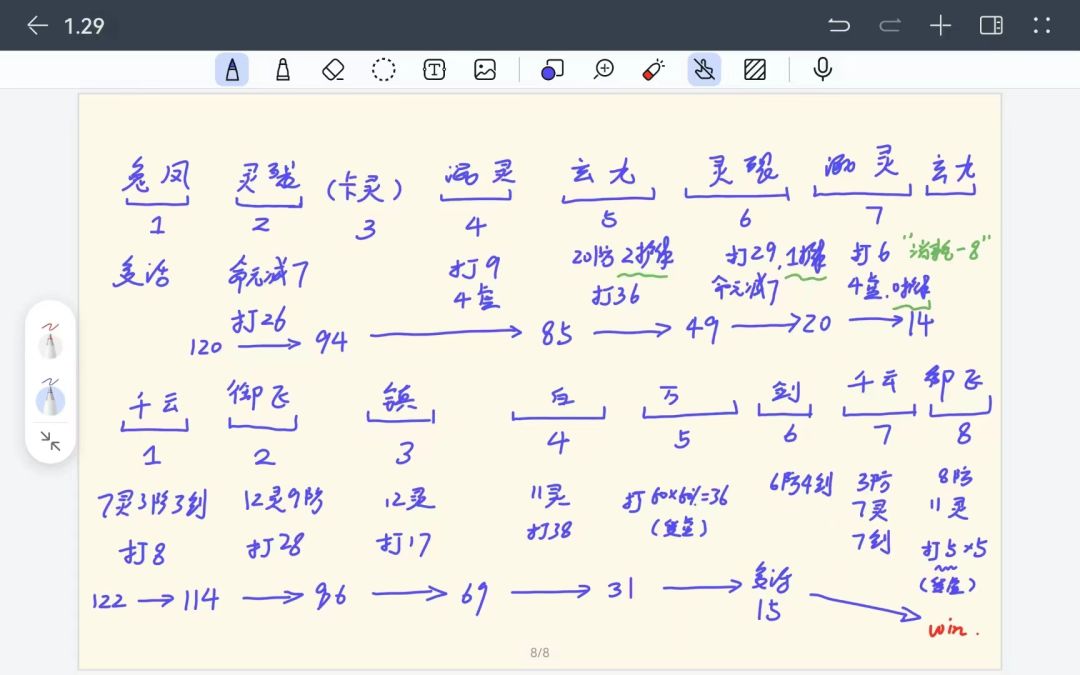 1.29
兔凤 灵裂 (卡灵) 漏灵 玄九 灵裂 漏灵 玄九
1 2 3 4 5 6 7
复活 命元减7 打9 20防 2护 打29, 1 打6 "消耗-8"
打26 4虚 打36 命元减7 4虚. 0
120 → 94 → 85 → 49 → 20 → 14
千云 御飞 镇 白 万 剑 千云 御飞
1 2 3 4 5 6 7 8
7灵3防3到 12灵9防 12灵 11灵 打60×60%=36 6防4到 3防 8防
打8 打28 打17 打38 (虚) 7灵 11灵
7到 打5×5
122 → 114 → 86 → 69 → 31 → 复活 (虚)
15 win.
8/8